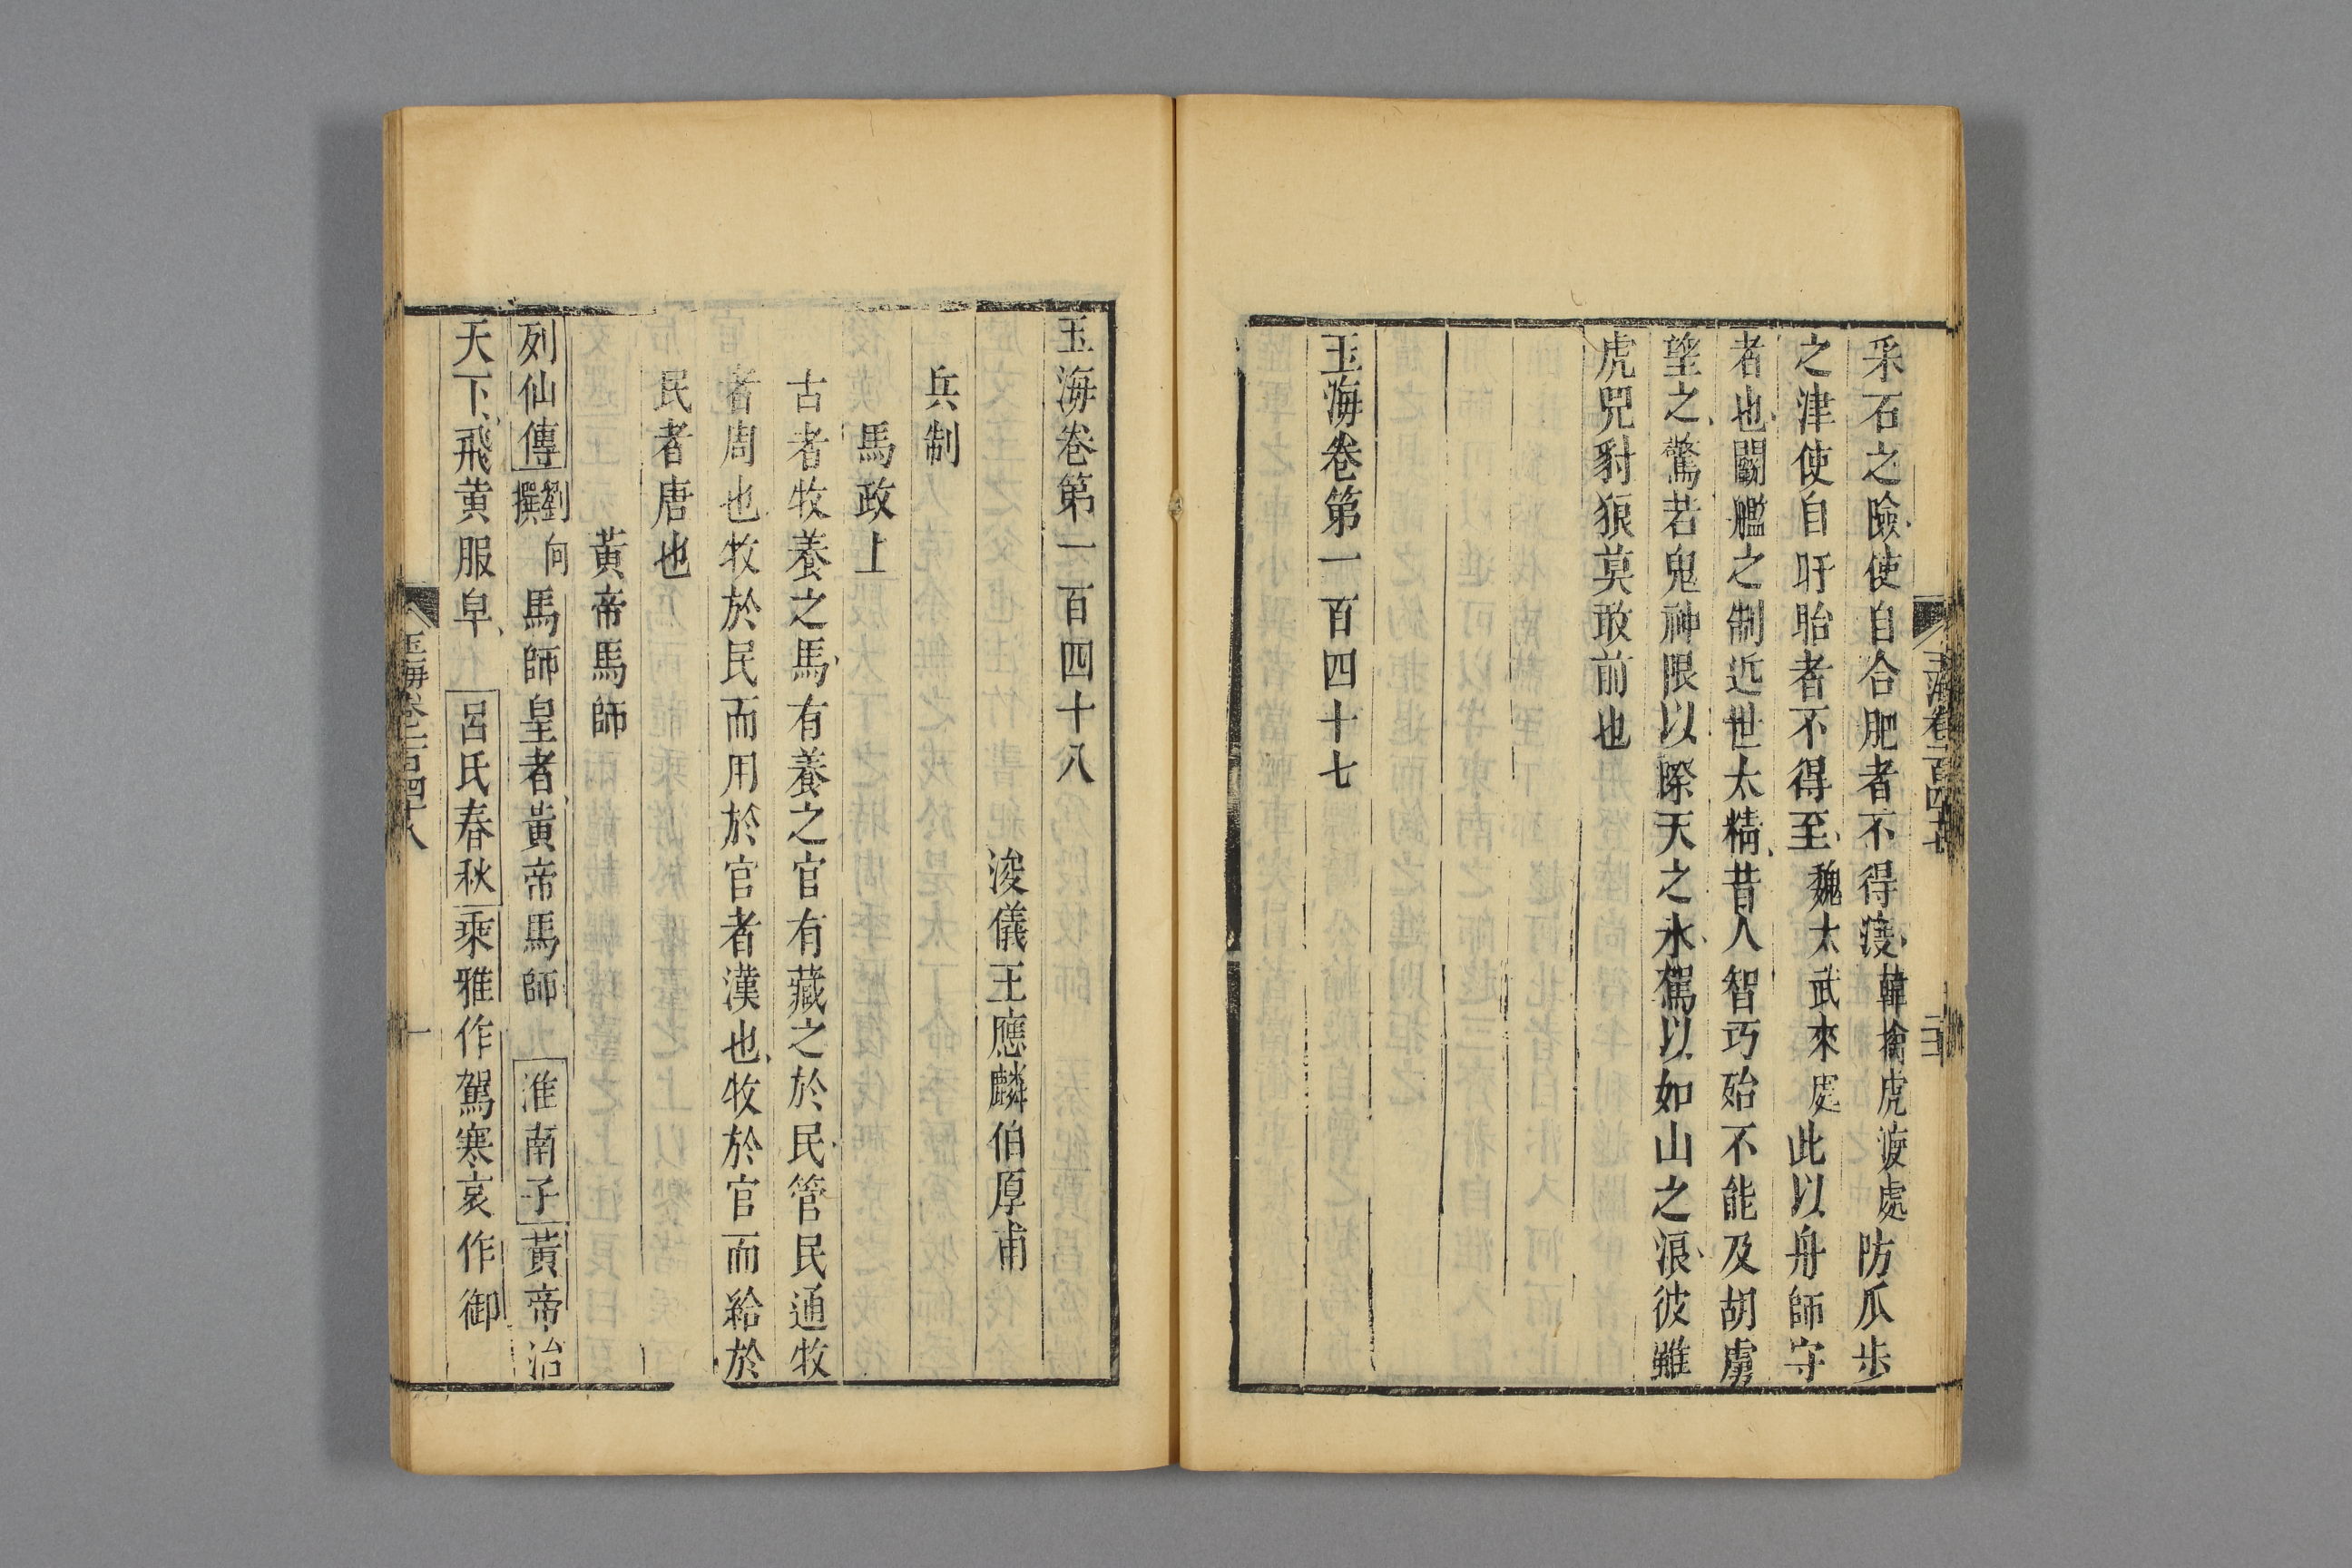 采石之險使自合肥者不得渡韓擒虎渡處防瓜步
之津使自盱眙者不得至魏太武來處此以舟師守
者也鬭艦之制近世太精昔人智巧殆不能及胡虜
望之驚若鬼神限以際天之水駕以如山之浪彼雖
虎兕豺狼莫敢前也
玉海卷第一百四十七
玉海卷第一百四十八
浚儀王應麟伯厚甫
兵制
馬政上
古者牧養之馬有養之官有藏之於民管民通牧
者周也牧於民而用於官者漢也牧於官而給於
民者唐也
黃帝馬師
列仙傳劉向撰馬師皇者黃帝馬師淮南子黃帝治
天下飛黃服皁呂氏春秋乘雅作駕寒哀作御
玉海卷一百四十八
一